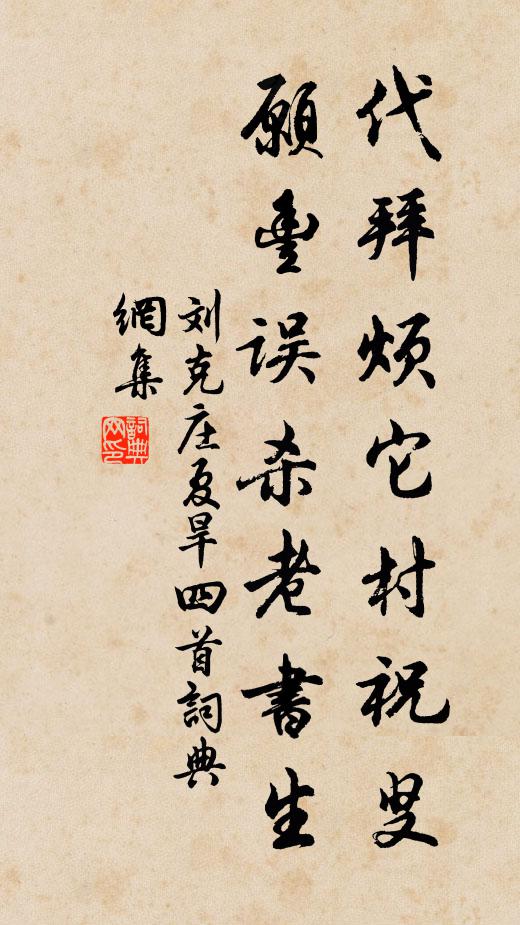 代拜烦它村祝叟
愿豊误杀老書生
刘克庄夏旱四首詞典
網集
詞典
网印